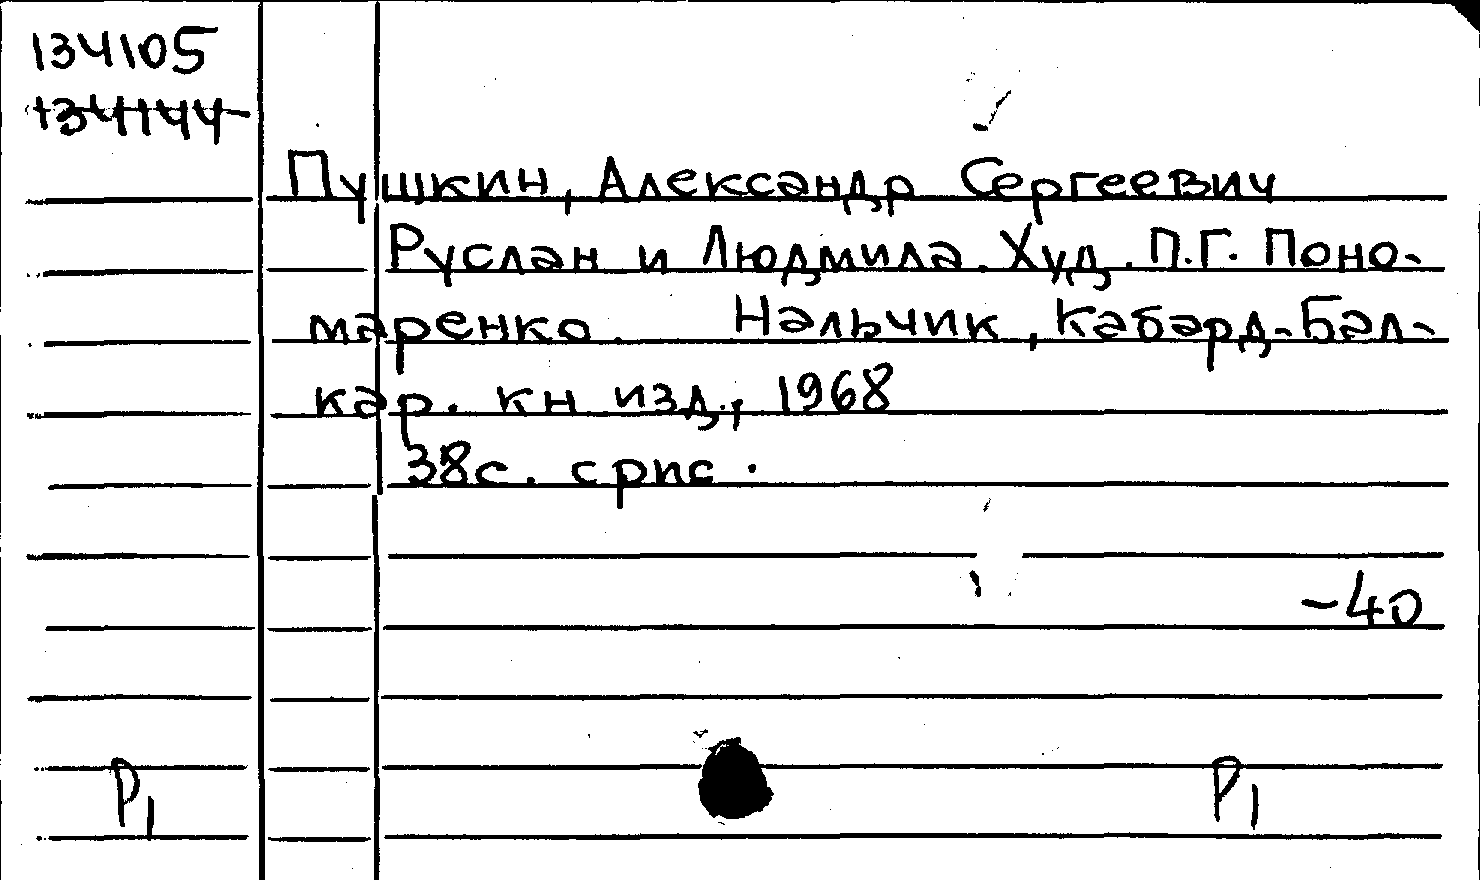 134105
134144
Пушкин, Александр Сергеевич
Руслан и Людмила. Худ. П.Г. Поно-
маренко. Нальчик, Кабард-Бал-
кар. кн изд., 1968
38с. с рис.
-40
Р1 Р1